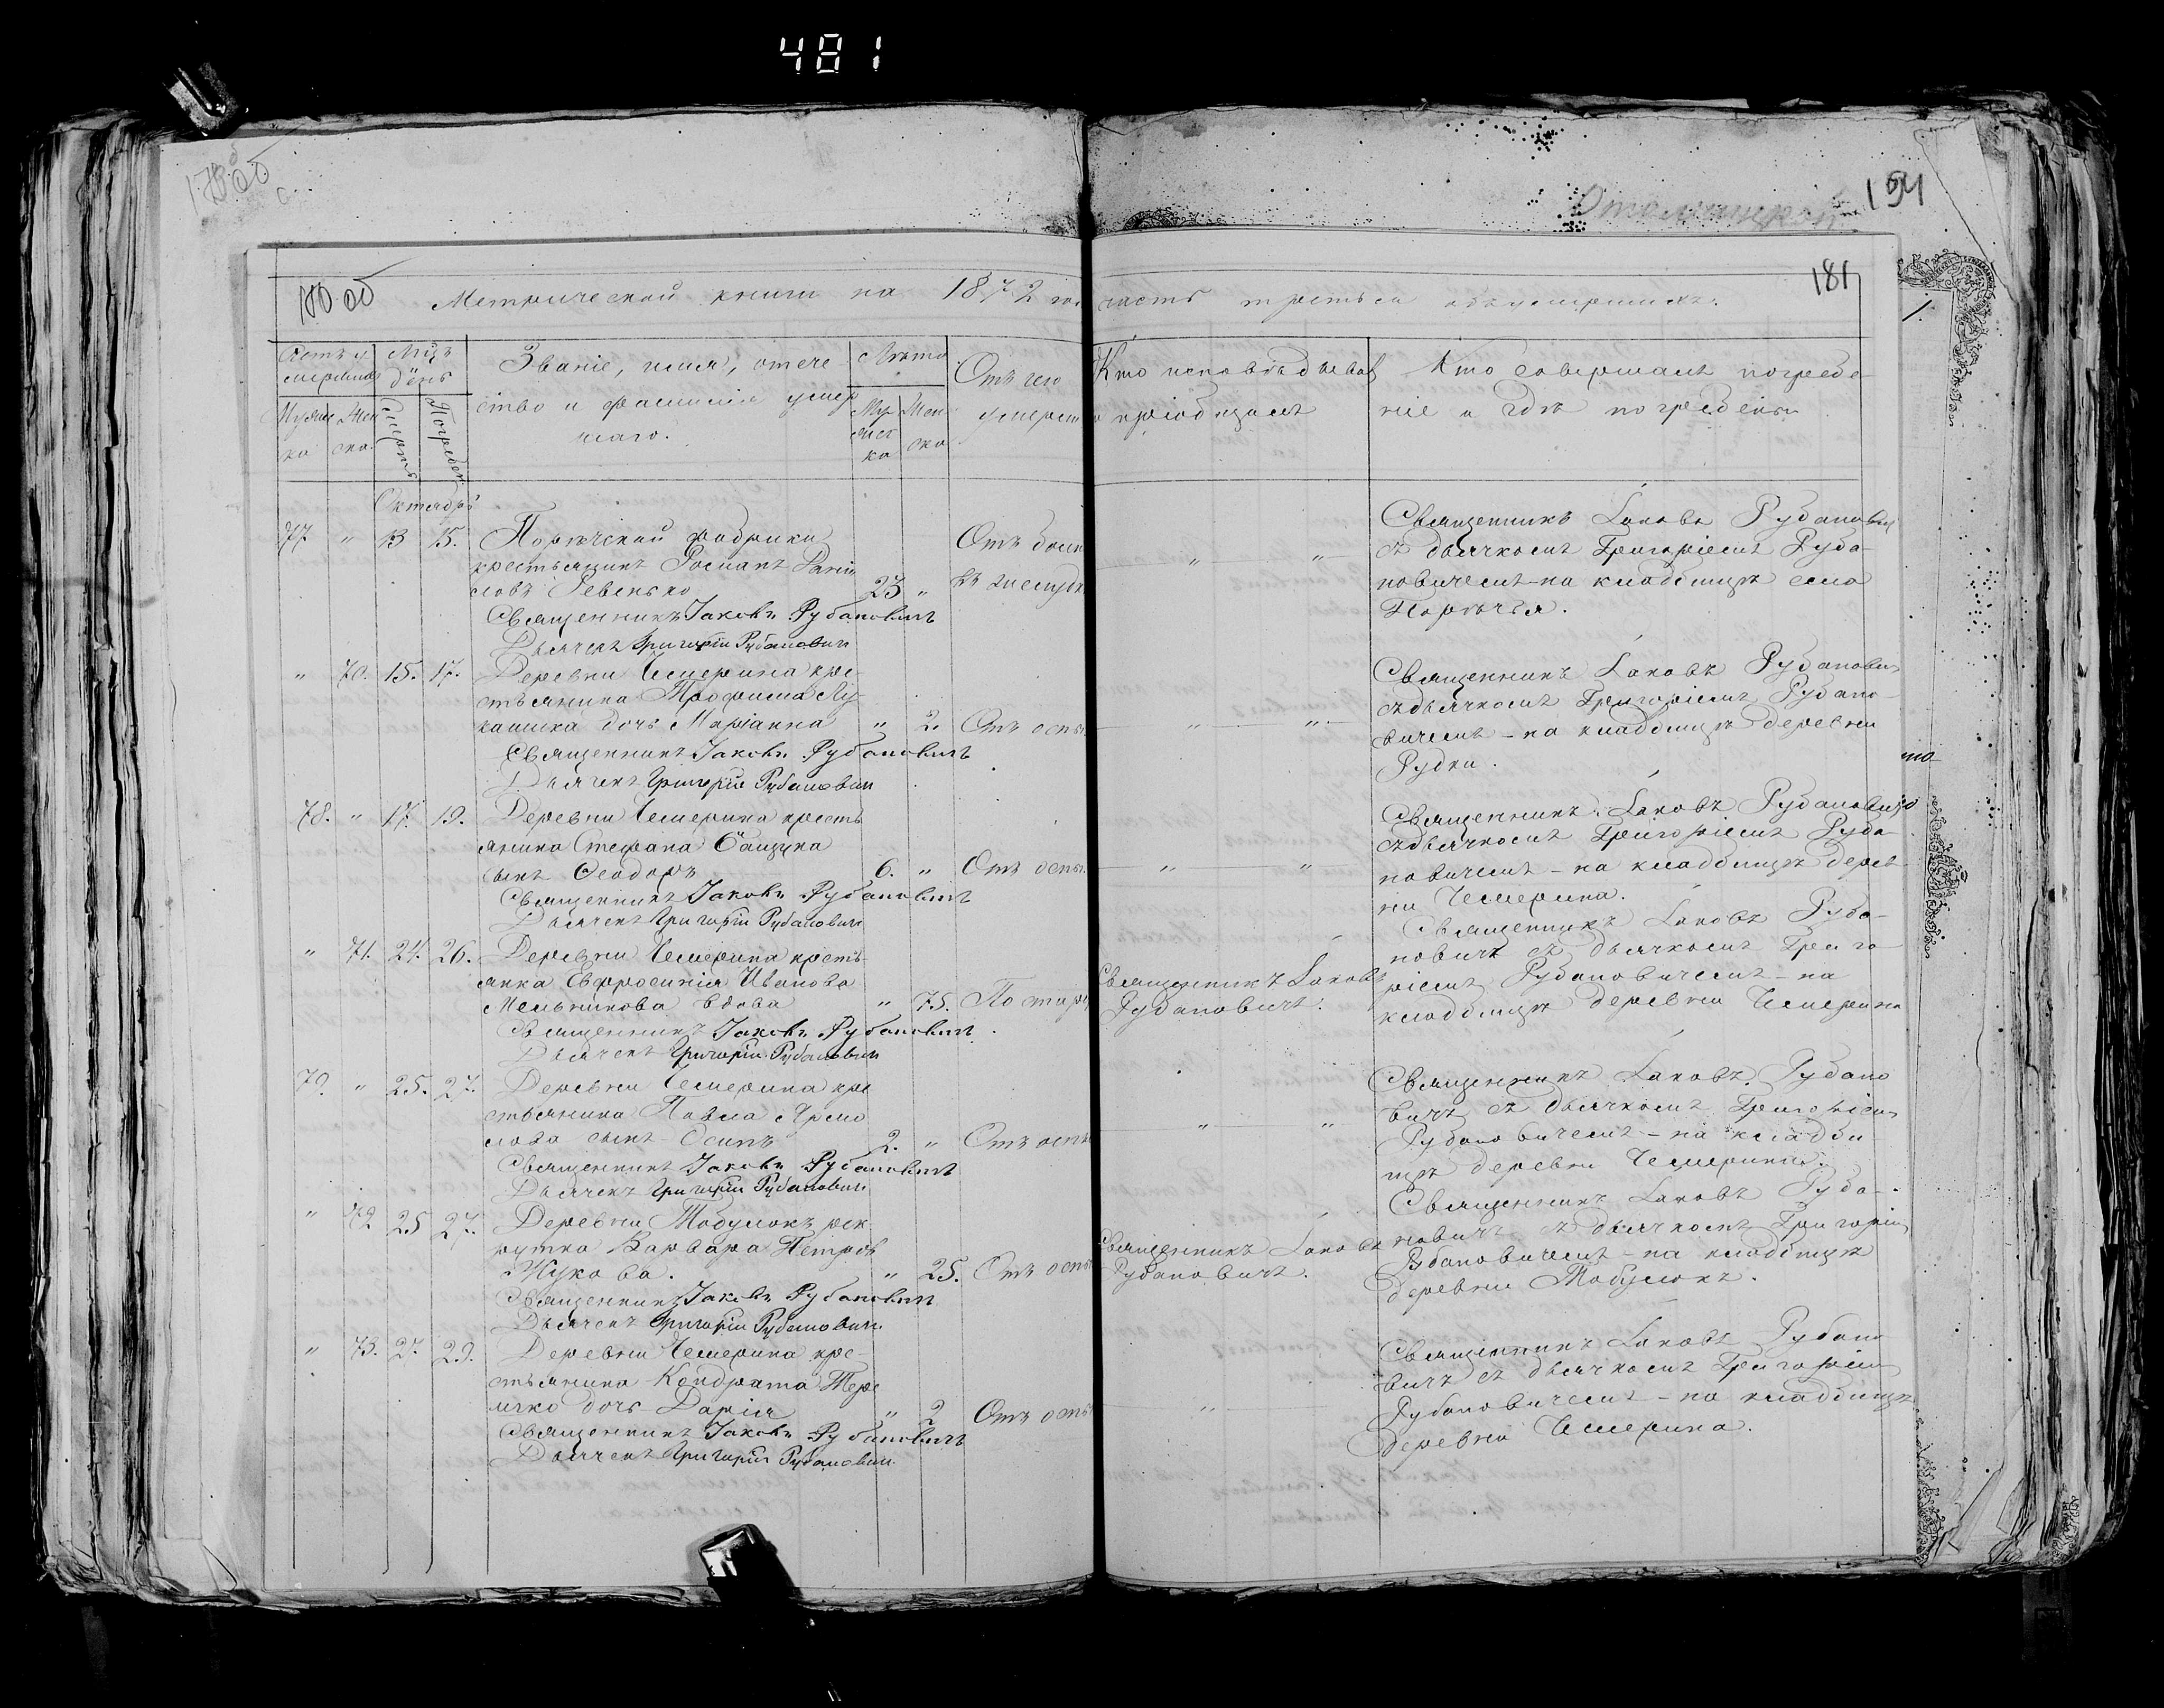 481
194
180 об
181
Метрической книги на 1872 го. часть третья объ умершихъ.
Мѣц.
день
Званіе, имя, отече
ство и фамилія умер
шаго.
Лѣта
Отъ чего
умеръ
Кто исповѣдывал
и пріобщалъ
Кто совершалъ погребе
ніе и гдѣ погребены
Октябрь
77 " 13 15. Порѣчской фабрики
крестьянинъ Романъ
Ревенько 23 "
Священникъ Іаковъ Рубановичъ
Дьячекъ Григорій Рубанович
Священникъ Іаковъ Рубанович
съ дьячкомъ Григоріемъ Руба-
новичемъ - на кладбищѣ села
Порѣчья.
" 70. 15. 17. Деревни Чемерина кре-
стьянина Трофима Лу
кашика дочь Маріанна " 2. Отъ оспы
Священникъ Іаковъ Рубановичъ
Дьячекъ Григорій Рубанович
Священникъ Іаковъ Рубанович
съ дьячкомъ Григоріемъ Рубано-
вичемъ - на кладбищѣ деревни
Рудки.
78. " 17. 19. Деревни Чемерина кресть
янина Стефана
сынъ Ѳеодоръ 6. " Отъ оспы.
Священникъ Іаковъ Рубановичъ
Дьячекъ Григорій Рубанович
Священникъ Іаковъ Рубанович
съ дьячкомъ Григоріемъ Руба-
новичемъ - на кладбищѣ дерев
ни Чемерина.
" 71. 24. 26. Деревни Чемерина кресть-
янка Евфросинія Иванова
Мельникова вдова " 75.
Священникъ Іаковъ Рубановичъ
Дьячекъ Григорій Рубанович
Священникъ Іаковъ
Рубановичъ.
Священникъ Іаковъ Руба-
новичъ съ дьячкомъ Григо
ріемъ Рубановичемъ - на
кладбищѣ деревни Чемерина
79. " 25. 27. Деревни Чемерина кре
стьянина Павла Ярмо
лова сынъ Осипъ 2. " Отъ оспы
Священникъ Іаковъ Рубановичъ
Дьячекъ Григорій Рубанович
Священникъ Іаковъ Рубано
вичъ съ дьячкомъ Григоріем
Рубановичемъ - на кладби
щѣ деревни Чемерина.
" 72 25 27. Деревни Тобулокъ рек
рутка Варвара Петров
Жукова. " 25. Отъ оспы
Священникъ Іаковъ Рубанович
Дьячекъ Григорій Рубанович
Священникъ Іаковъ
Рубановичъ.
Священникъ Іаковъ Руба-
новичъ съ дьячкомъ Григоріем
Рубановичемъ - на кладбищѣ
деревни Тобулокъ.
" 73. 27. 29. Деревни Чемерина кре-
стьянина Кондрата
дочь Дарія " 2 Отъ оспы
Священникъ Іаковъ Рубановичъ
Дьячекъ Григорій Рубанович
Священникъ Іаковъ Рубано
вичъ съ дьячкомъ Григоріем
Рубановичемъ - на кладбищѣ
деревни Чемерина.